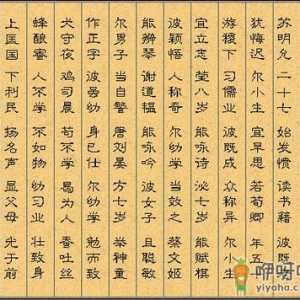 苏明允 二十七 始发愤 读书籍 彼既老
犹悔迟 尔小生 宜早思 若荀卿 年五十
游稷下 习儒业 彼既成 众称异 尔小生
宜立志 莹八岁 能咏诗 泌七岁 能赋棋
彼颖悟 人称奇 尔幼学 当效之 蔡文姬
能辨琴 谢道韫 能咏吟 彼女子 且聪敏
尔男子 当自警 唐刘晏 方七岁 举神童
作正字 彼虽幼 身已仕 尔幼学 勉而致
犬守夜 鸡司晨 苟不学 曷为人 蚕吐丝
蜂酿蜜 人不学 不如物 幼习业 壮致身
上匡国 下利民 扬名声 显父母 光于前
咿呀呀
yiyoha.com